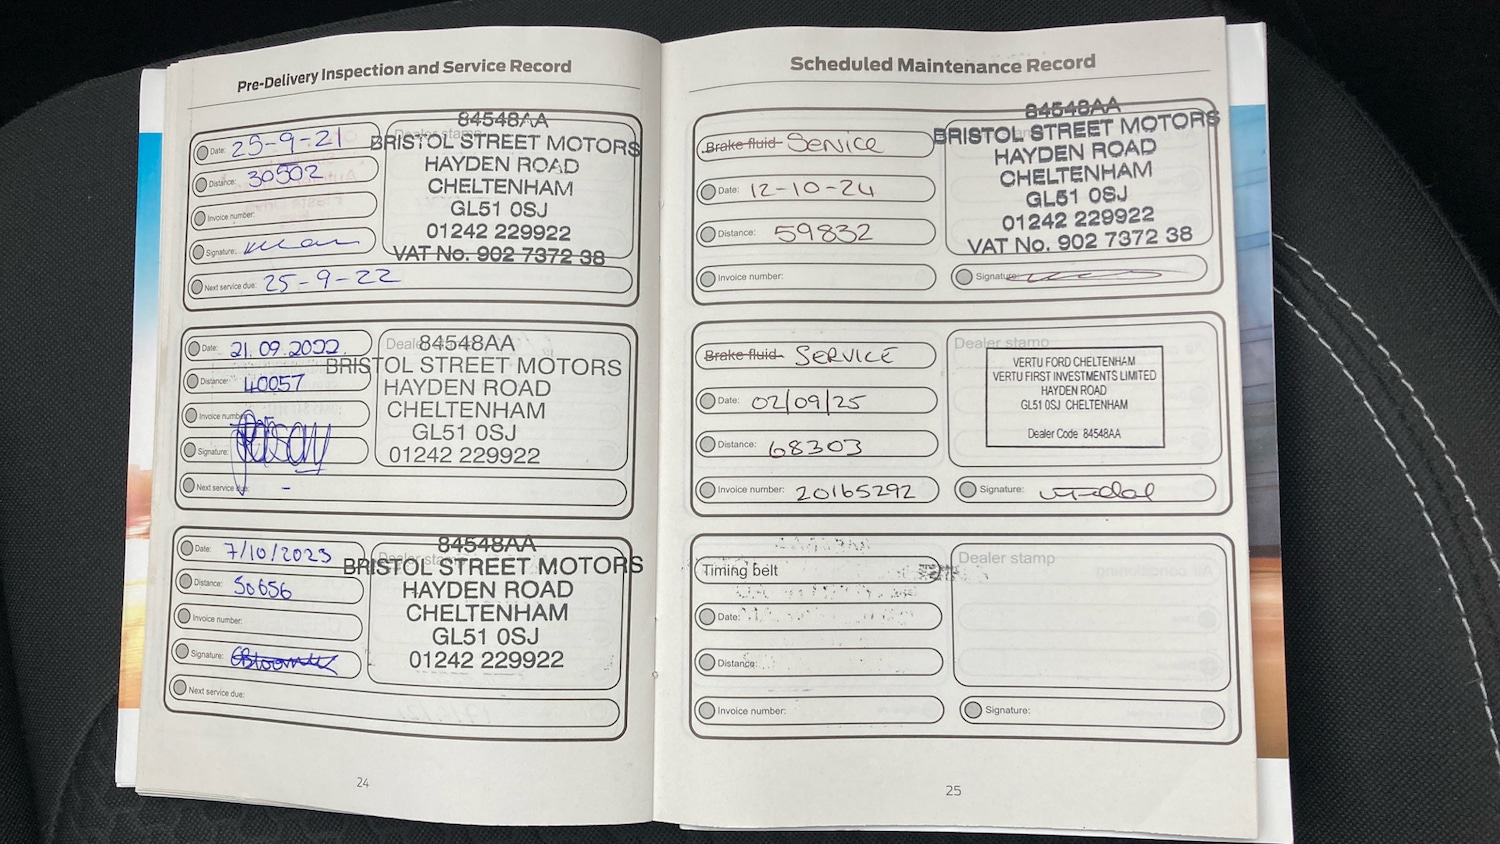 Pre-Delivery Inspection and Service Record
Date: 25-9-21
Distance: 30502
Invoice number:
Signature:
Next service due: 25-9-22
Dealer stamp
84548AA
BRISTOL STREET MOTORS
HAYDEN ROAD
CHELTENHAM
GL51 0SJ
01242 229922
VAT No. 902 7372 38
Date: 21.09.2022
Distance: 40057
Invoice number:
Signature:
Next service due: -
Dealer stamp
84548AA
BRISTOL STREET MOTORS
HAYDEN ROAD
CHELTENHAM
GL51 0SJ
01242 229922
Date: 7/10/2023
Distance: 50656
Invoice number:
Signature:
Next service due:
Dealer stamp
84548AA
BRISTOL STREET MOTORS
HAYDEN ROAD
CHELTENHAM
GL51 0SJ
01242 229922
24
Scheduled Maintenance Record
Brake fluid SERVICE
Date: 12-10-24
Distance: 59832
Invoice number:
84548AA
BRISTOL STREET MOTORS
HAYDEN ROAD
CHELTENHAM
GL51 0SJ
01242 229922
VAT No. 902 7372 38
Signature:
Brake fluid SERVICE
Date: 02/09/25
Distance: 68303
Invoice number: 20165292
Dealer stamp
VERTU FORD CHELTENHAM
VERTU FIRST INVESTMENTS LIMITED
HAYDEN ROAD
GL51 0SJ CHELTENHAM
Dealer Code 84548AA
Signature:
Timing belt
Date:
Distance:
Invoice number:
Dealer stamp
Signature:
25